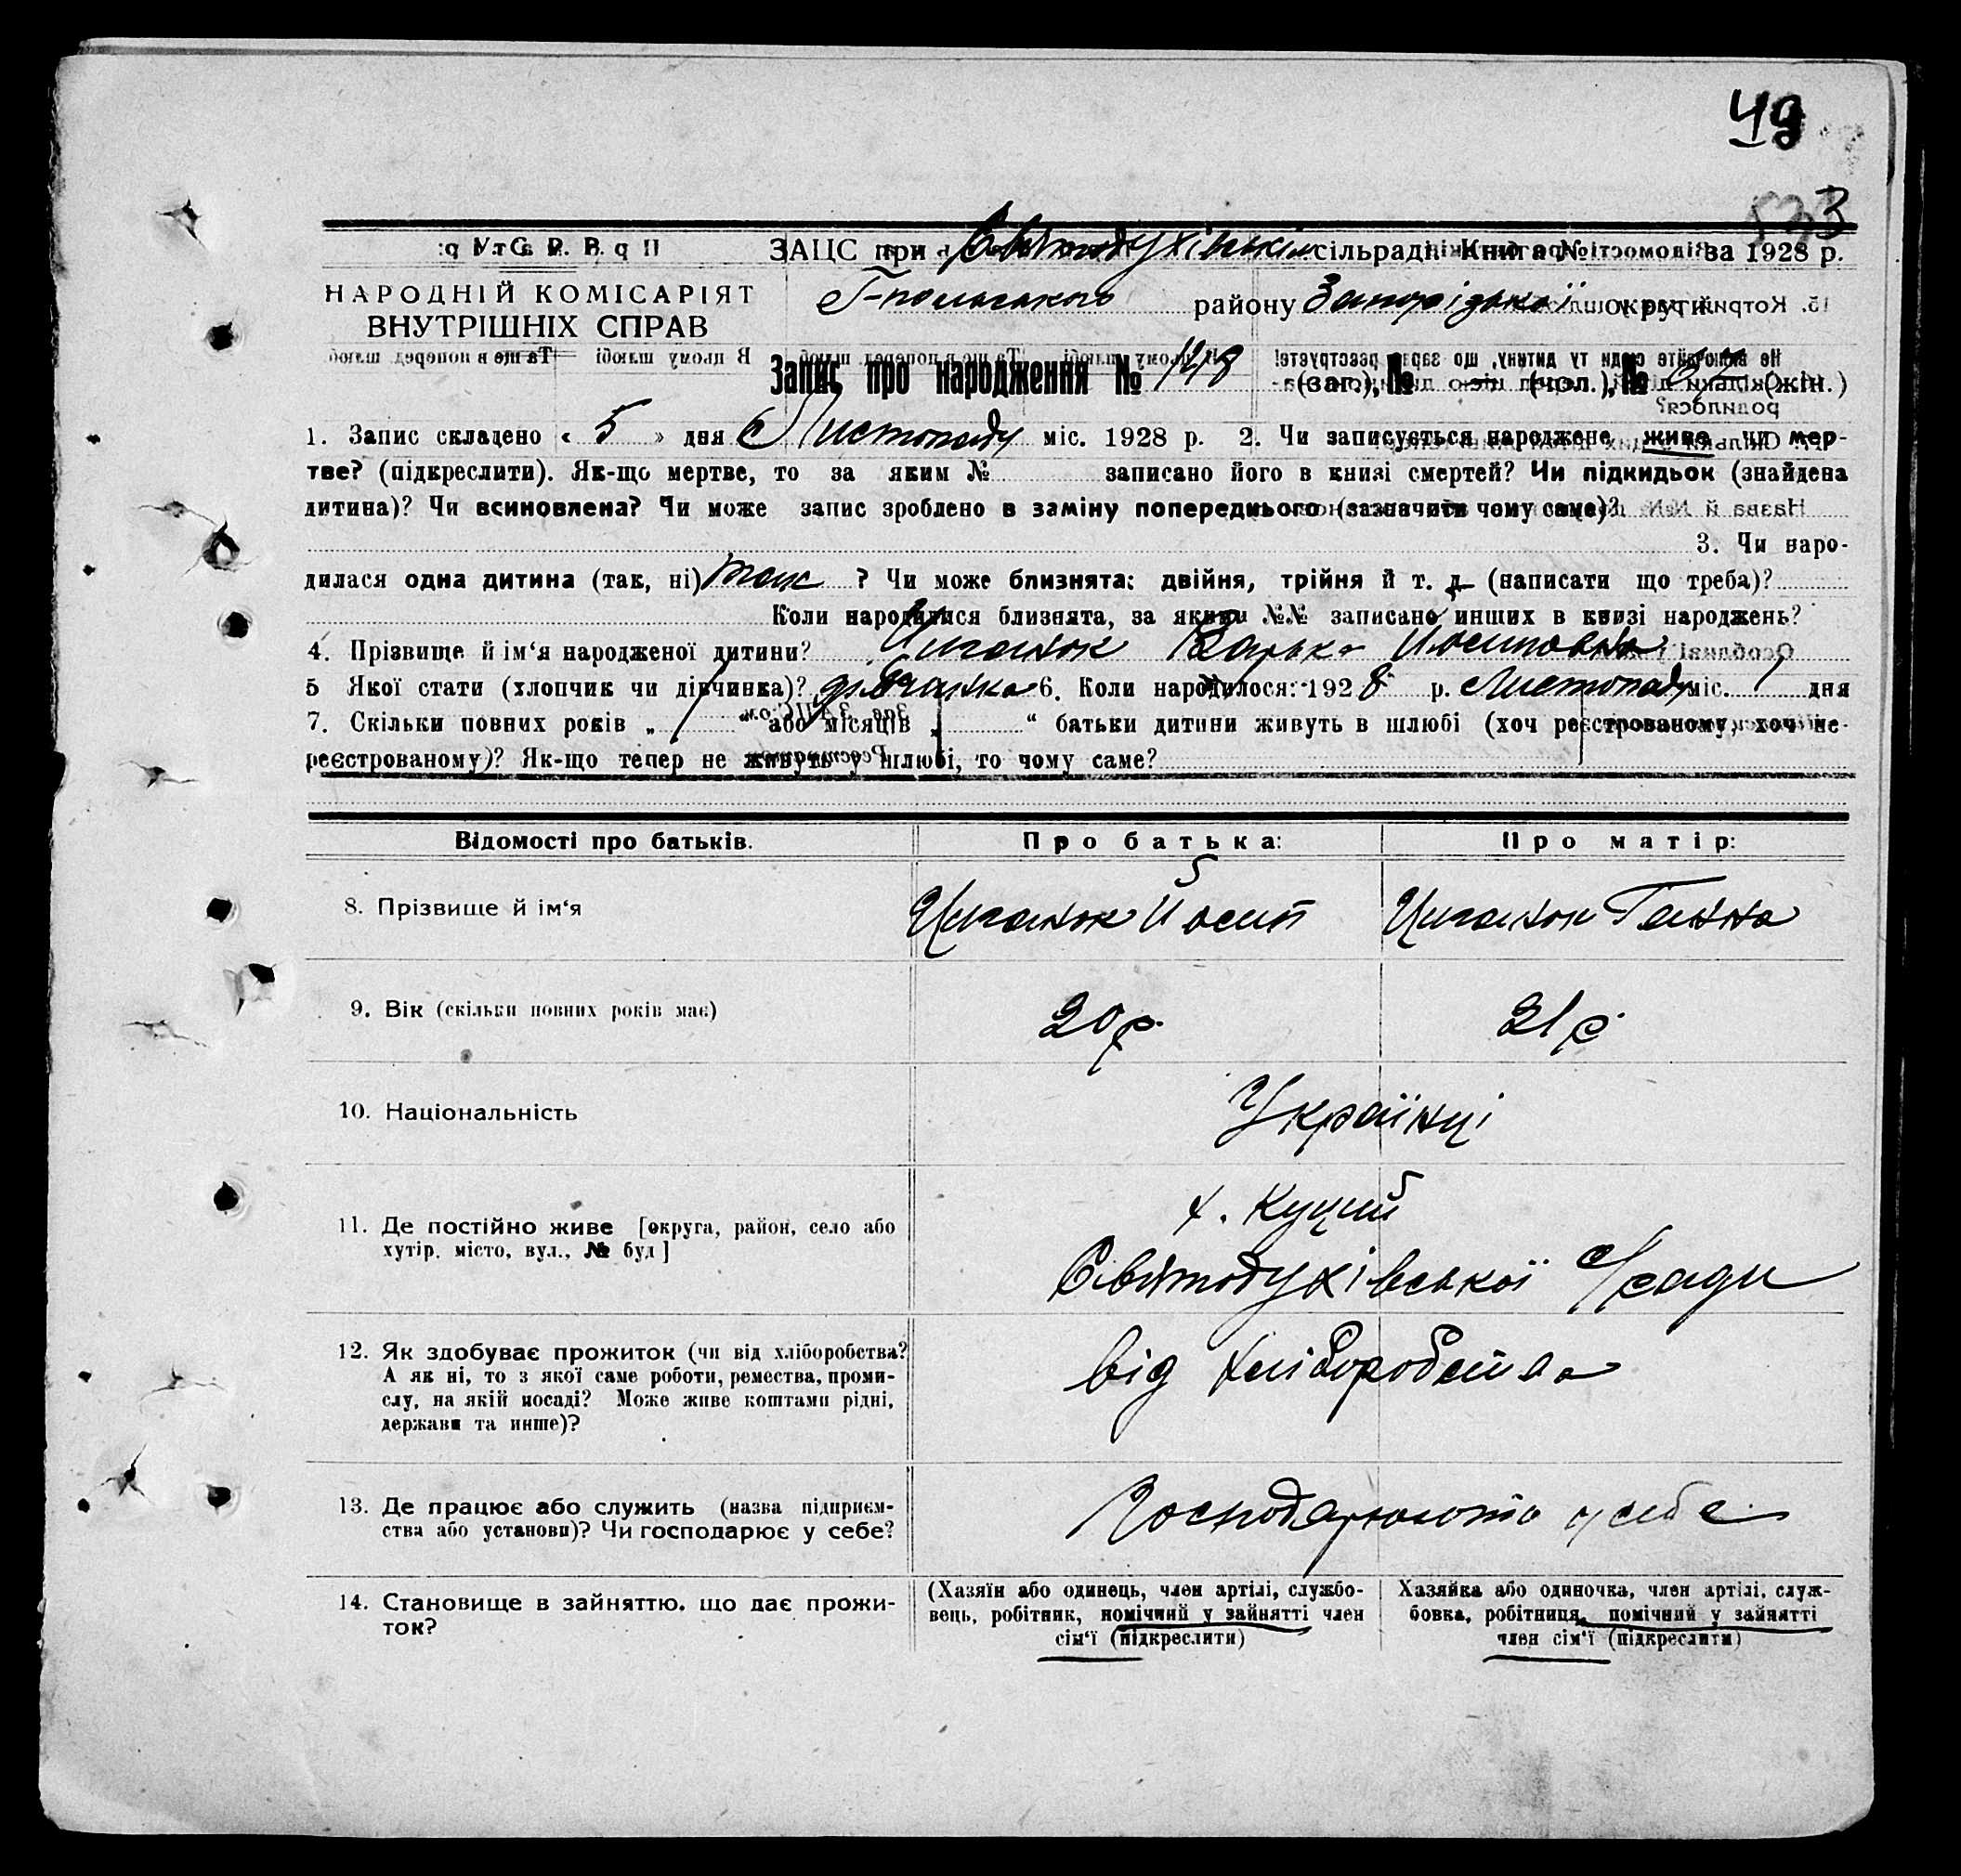 49
3
У. С. Р. Р.
НАРОДНІЙ КОМІСАРІЯТ
ВНУТРІШНІХ СПРАВ
ЗАЦС при Святодухівській сільраді. Книга № за 1928 р.
району Запорізької округи.
Запис про народження № 148 (заг.), № — (чол.), № (жін.)
1. Запис складено « 5 » дня Листопаду міс. 1928 р. 2. Чи записується народжене живе чи мер-
тве? (підкреслити). Як-що мертве, то за яким № записано його в книзі смертей? Чи підкидьок (знайдена
дитина)? Чи всиновлена? Чи може запис зроблено в заміну попереднього (зазначити чому саме)?
3. Чи наро-
дилася одна дитина (так, ні) так ? Чи може близнята: двійня, трійня й т. д. (написати що треба)?
Коли народилися близнята, за якими №№ записано инших в книзі народжень?
4. Прізвище й ім‘я народженої дитини? Циганок Варька Йосиповна
5 Якої стати (хлопчик чи дівчинка)? дівчинка 6. Коли народилося: 1928 р. Листопаду міс. 1 дня
7. Скільки повних років „ 1 “ або місяців „ “ батьки дитини живуть в шлюбі (хоч реєстрованому, хоч не-
реєстрованому)? Як-що тепер не живуть у шлюбі, то чому саме?
Відомості про батьків.
Про батька:
Про матір:
8. Прізвище й ім‘я
Циганок Йосип
Циганок Ганна
9. Вік (скільки повних років має)
20 р.
21 р.
10. Національність
Українці
11. Де постійно живе [округа, район, село або
хутір, місто, вул., № буд]
х. Куций
Святодухівської с/ради
12. Як здобуває прожиток (чи від хліборобства?
А як ні, то з якої саме роботи, ремества, проми-
слу, на якій посаді? Може живе коштами рідні,
держави та инше)?
від хліборобства
13. Де працює або служить (назва підприєм-
ства або установи)? Чи господарює у себе?
Господарюють у себе
14. Становище в зайняттю, що дає прожи-
ток?
(Хазяїн або одинець, член артілі, службо-
вець, робітник, помічний у зайнятті член
сім‘ї (підкреслити)
Хазяйка або одиночка, член артілі, служ-
бовка, робітниця, помічний у зайнятті
член сім‘ї (підкреслити)